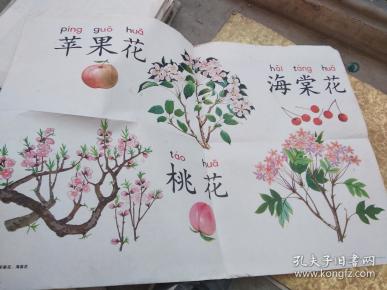 píng guǒ huā
苹果花
hǎi táng huā
海棠花
táo huā
桃花
孔夫子旧书网